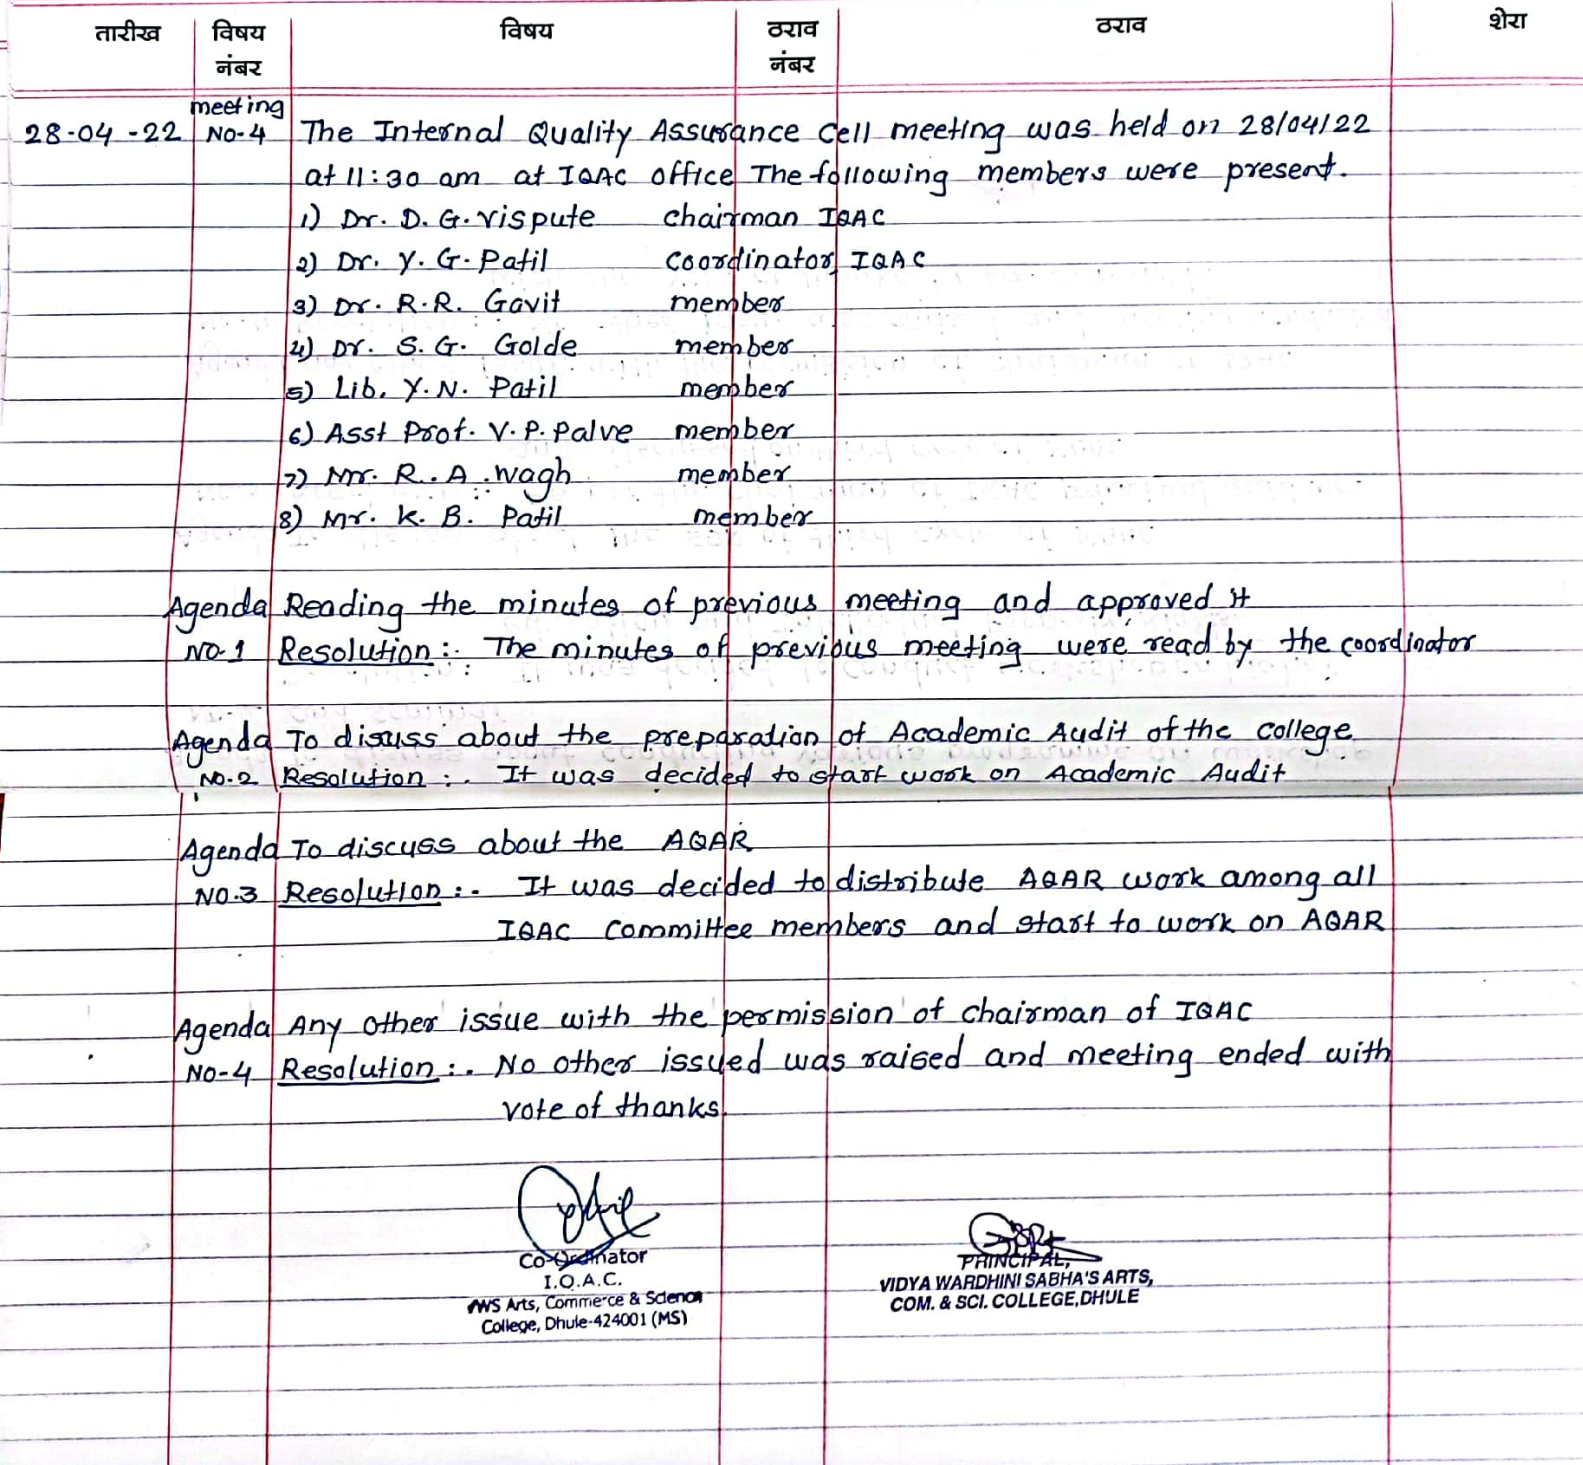 तारीख विषय नंबर विषय ठराव नंबर ठराव शेरा
meeting
28-04-22 NO-4 The Internal Quality Assurance Cell meeting was held on 28/04/22
at 11:30 am at IQAC office The following members were present.
1) Dr. D. G. Vispute chairman IQAC
2) Dr. Y. G. Patil Coordinator IQAC
3) Dr. R.R. Gavit member
4) Dr. S. G. Golde member
5) Lib. Y. N. Patil member
6) Asst Prof. V. P. Palve member
7) Mr. R. A. Wagh member
8) Mr. K. B. Patil member
Agenda Reading the minutes of previous meeting and approved it
NO-1 Resolution :. The minutes of previous meeting were read by the coordinator
Agenda To disuss about the preparation of Academic Audit of the college
NO.2 Resolution :. It was decided to start work on Academic Audit
Agenda To discuss about the AQAR
NO.3 Resolution :. It was decided to distribute AQAR work among all
IQAC Committee members and start to work on AQAR
Agenda Any other issue with the permission of chairman of IQAC
NO-4 Resolution :. No other issued was raised and meeting ended with
vote of thanks.
Co-Ordinator
I.Q.A.C.
VWS Arts, Commerce & Science
College, Dhule-424001 (MS)
PRINCIPAL,
VIDYA WARDHINI SABHA'S ARTS,
COM. & SCI. COLLEGE,DHULE